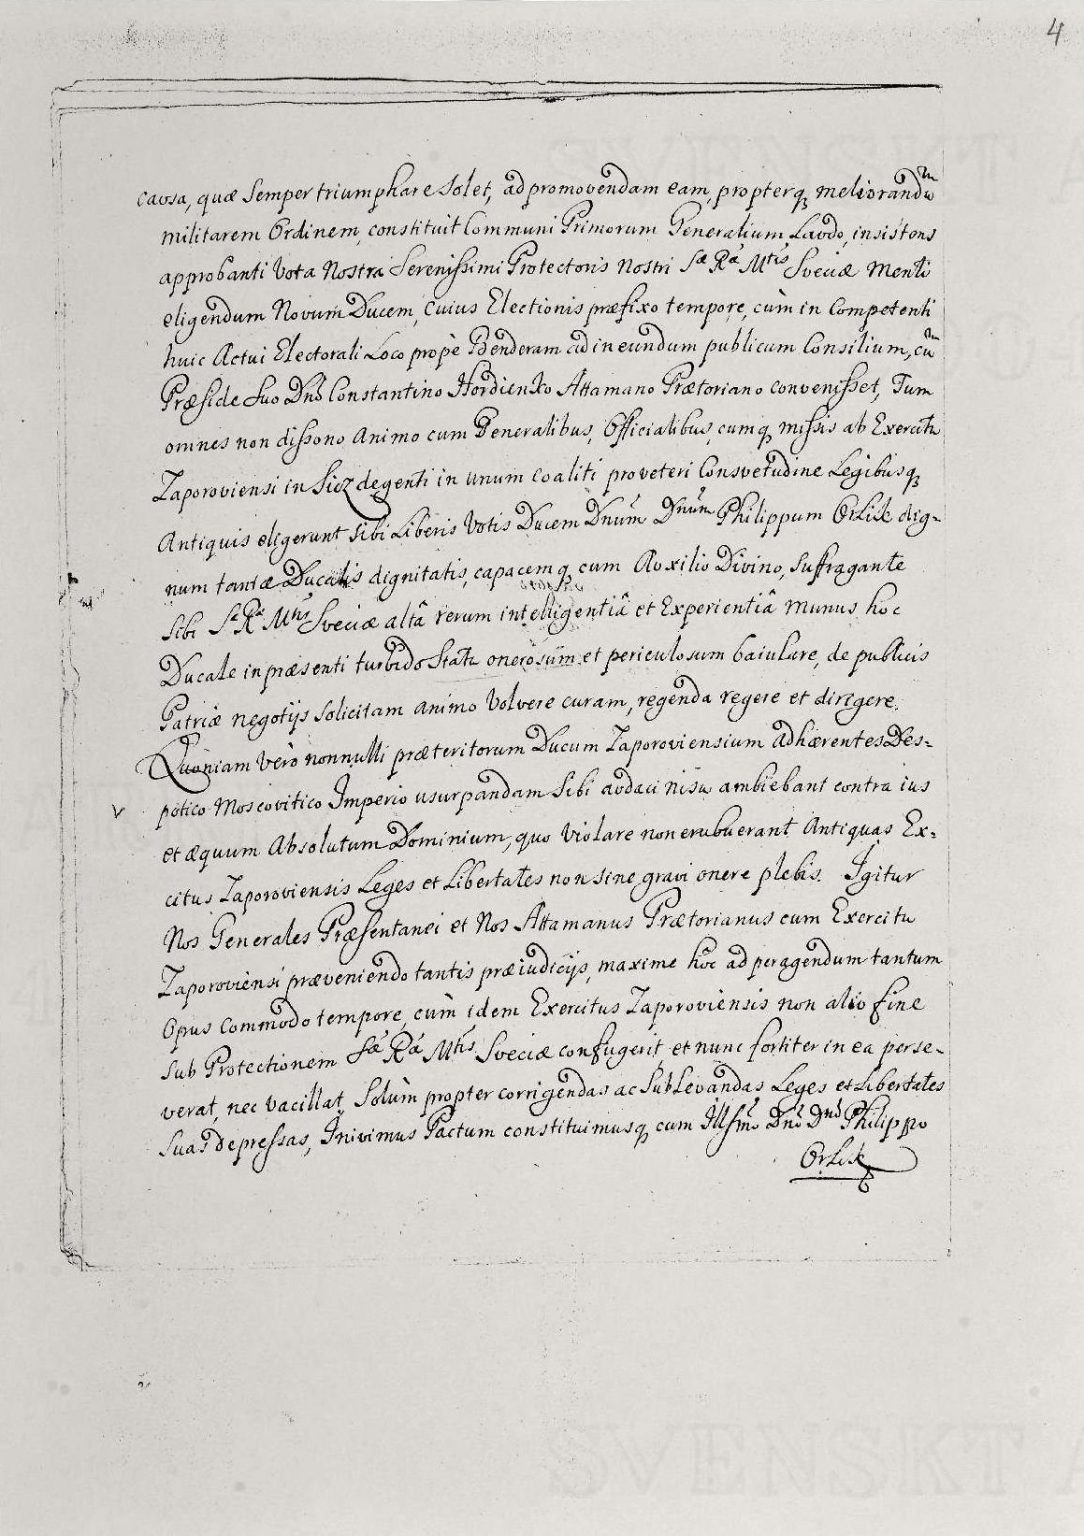 4
causa, quæ Semper triumphare Solet, ad promovendam eam, propterq meliorandũ
militarem Ordinem, constituit Communi Primorum Generalium Laudo, insistens
approbanti Vota Nostra Serenissimi Protectoris Nostri Sæ Ræ Mtis Sveciæ Menti
eligendum Novum Ducem, Cuius Electionis præfixo tempore, cùm in Competenti
huic Actui Electorali Loco propè Benderam ad ineundum publicum Consilium, cũ
Præside Suo Dnõ Constantino Hordienko Attamano Prætoriano convenisset, Tum
omnes non dissono Animo cum Generalibus, Officialibus, cumq missis ab Exercitu
Zaporoviensi in Sicz degenti in unum coaliti pro veteri Consvetudine Legibusq
Antiquis eligerunt Sibi Liberis Votis Ducem Dnũm Dnũm Philippum Orlik dig-
num tantæ Ducalis dignitatis, capacemq cum Auxilio Divino, Suffragante
Sibi Sæ Ræ Mtis Sveciæ altâ rerum intelligentiâ et Experientiâ Munus hoc
Ducale in præsenti turbido Statu onerosum et periculosum baiulare, de publicis
Patriæ negotijs Solicitam Animo Volvere curam, regenda regere et dirigere.
Quoniam vero nonnulli præteritorum Ducum Zaporoviensium Adhærentes Des-
v
potico Moscovitico Imperio usurpandam Sibi audaci nisu ambiebant contra ius
et æquum Absolutum Dominium, quo Violare non erubuerant Antiquas Ex-
citus Zaporoviensis Leges et Libertates non Sine gravi onere plebis. Igitur
Nos Generales Præsentanei et Nos Attamanus Prætorianus cum Exercitu
Zaporoviensi præveniendo tantis præiudicijs, maxime hoc ad peragendum tantum
Opus Commodo tempore, cùm idem Exercitus Zaporoviensis non alio fine
Sub Protectionem Sæ Ræ Mtis Sveciæ confugerit et nunc fortiter in ea perse-
verat, nec vacillat, Solùm propter corrigendas ac Sublevandas Leges et Libertates
Suas depressas, Inivimus Pactum constituimusq cum Illsmo Dnõ Dnõ Philippo
Orlik
SVENSKT A